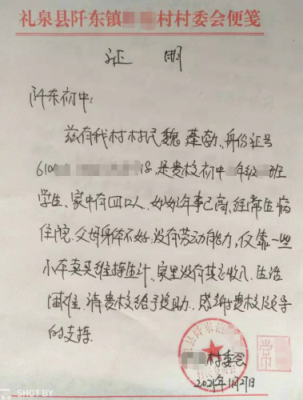 礼泉县阡东镇 村村委会便笺
证 明
阡东初中:
兹有我村村民魏 身份证号
610 18是贵校初中 年级 班
学生、家中有四口人、妈妈年事已高,经常生病
住院,父母身体不好,没有劳动能力,仅靠一些
小本卖买维持生计、家里没有其它收入,生活
困难,请贵校给予援助、感谢贵校及
的支持.
村委会
2021年1月27日
SHOT BY